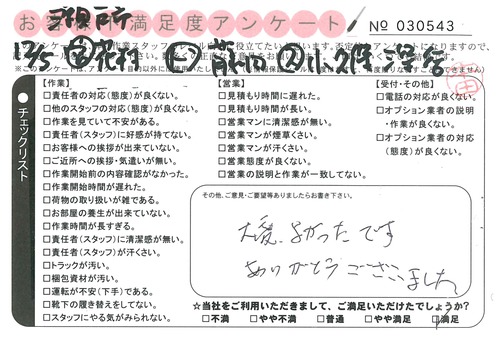 お客様満足度アンケート
№ 030543
チェックリスト
【作業】
□責任者の対応(態度)が良くない。
□他のスタッフの対応(態度)が良くない。
□作業を見ていて不安がある。
□責任者(スタッフ)に好感が持てない。
□お客様への挨拶が出来ていない。
□ご近所への挨拶・気遣いが無い。
□作業開始前の内容確認がなかった。
□作業開始時間が遅れた。
□荷物の取り扱いが雑である。
□お部屋の養生が出来ていない。
□作業時間が長すぎる。
□責任者(スタッフ)に清潔感が無い。
□責任者(スタッフ)が汗くさい。
□トラックが汚い。
□梱包資材が汚い。
□運転が不安(下手)である。
□靴下の履き替えをしてない。
□スタッフにやる気がみられない。
【営業】
□見積もり時間に遅れた。
□見積もり時間が長い。
□営業マンに清潔感が無い。
□営業マンが煙草くさい。
□営業マンが汗くさい。
□営業態度が良くない。
□営業の説明と作業が一致してない。
【受付・その他】
□電話の対応が良くない。
□オプション業者の説明
・作業が良くない。
□オプション業者の対応
(態度)が良くない。
その他、ご意見・ご要望等ありましたらお書き下さい。
大変よかったです
ありがとうございました
☆当社をご利用いただきまして、ご満足いただけたでしょうか?
□不満 □やや不満 □普通 □やや満足 □満足